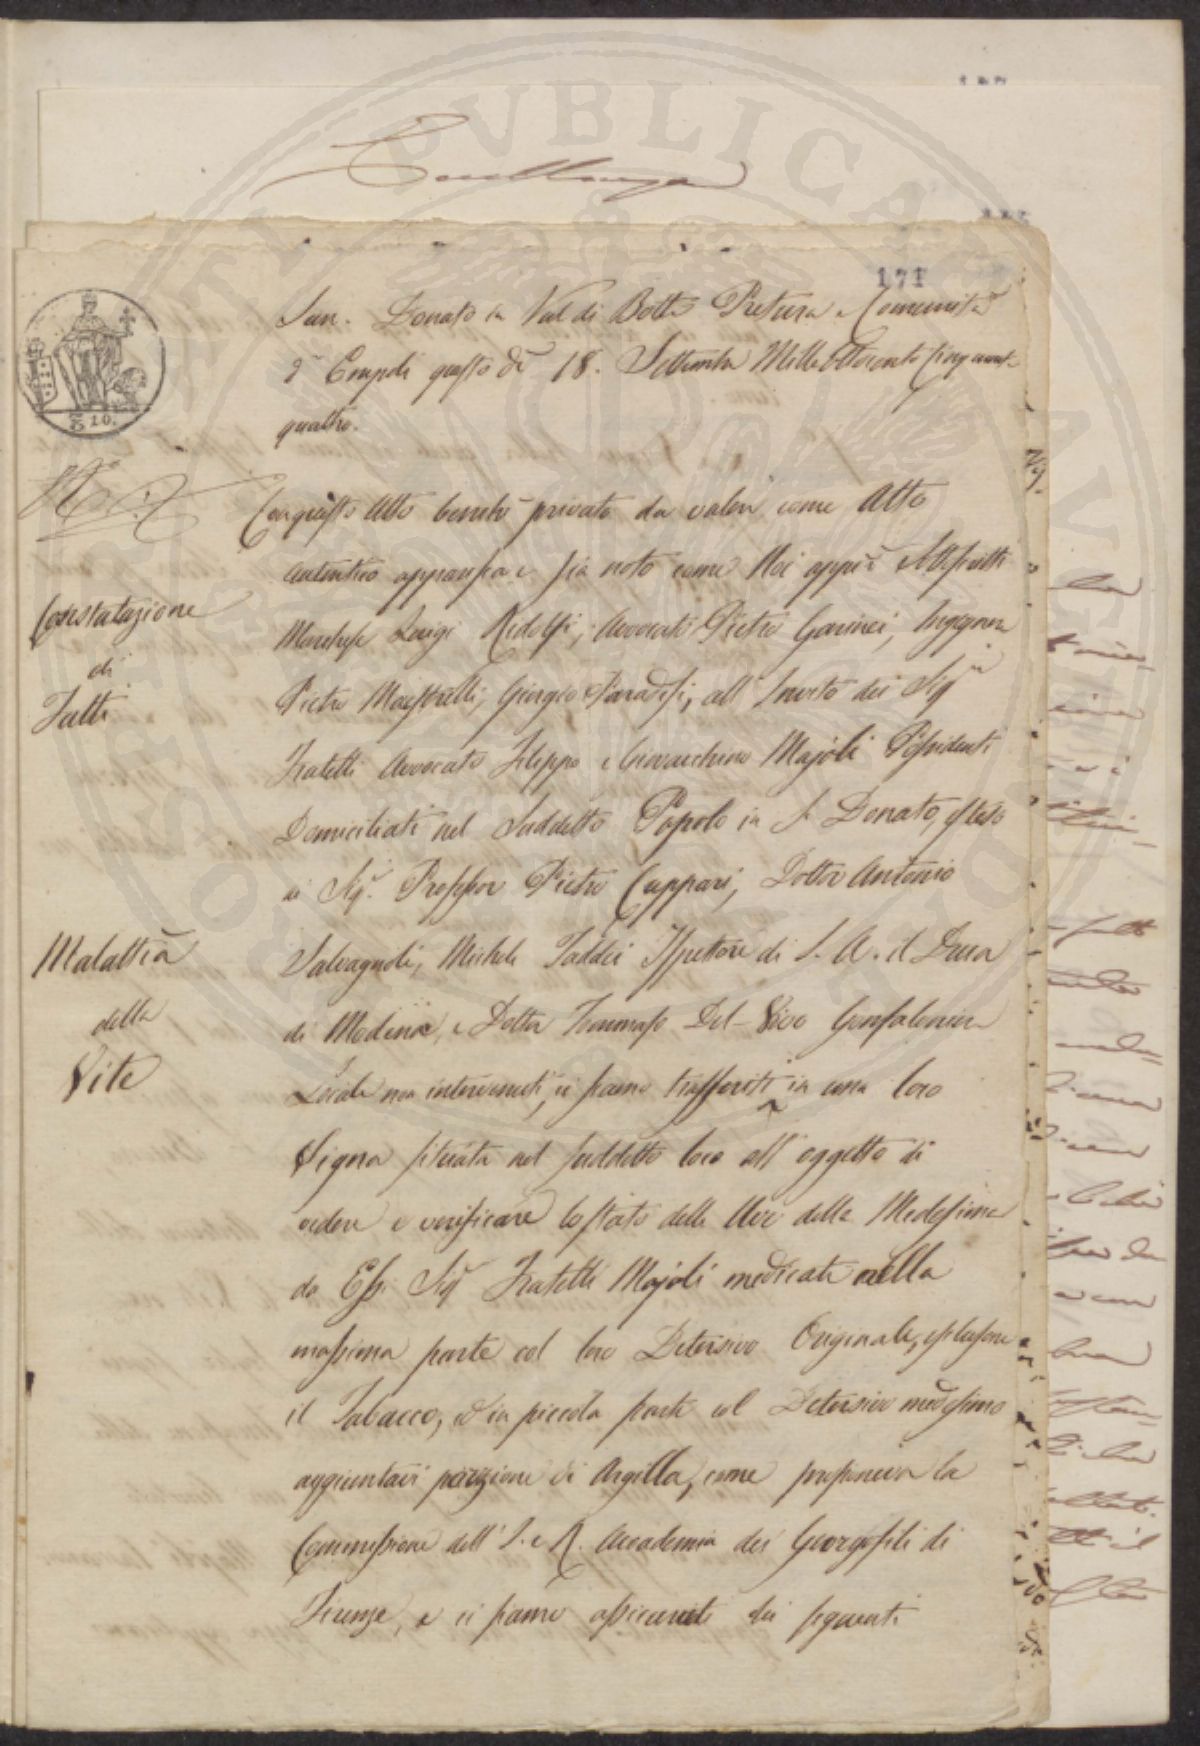 Eccellenza
171
San. Donato in Val di Botte Pretura e Comunità
d'Empoli questo dì 18. Settembre Mille ottocento cinquanta-
quattro.
10.
Con questo Atto benchè privato da valere come Atto
autentico apparisca e sia noto come Noi appiè Sottoscritti
Marchese Luigi Ridolfi, Avvocato Pietro Gavinei, Ingegnere
Pietro Maestrelli, Giorgio Paradisi, all'Invito dei Sigri
Fratelli Avvocato Filippo e Giovacchino Majoli Possidenti
Domiciliati nel Suddetto Popolo in S. Donato, esteso
ai Sigri Professor Pietro Cuppari, Dottor Antonio
Salvagnoli, Michele Taddei Ispettore di S. A. il Duca
di Modena, e Dottor Tommaso Del-Vivo Gonfaloniere
Locale non intervenuti, ci siamo trasferiti in una loro
Vigna situata nel suddetto loco all'oggetto di
vedere e verificare lo stato delle Uve della Medesima
da Essi Sigri Fratelli Majoli medicate nella
massima parte col loro Detersivo Originale, esclusone
il Tabacco, ed in piccola parte col Detersivo medesimo
aggiuntavi porzione di Argilla, come proponeva la
Commissione dell'I. e R. Accademia dei Georgofili di
Firenze, e ci siamo assicurati dei seguenti
Constatazione
di
Fatti
Malattia
della
Vite